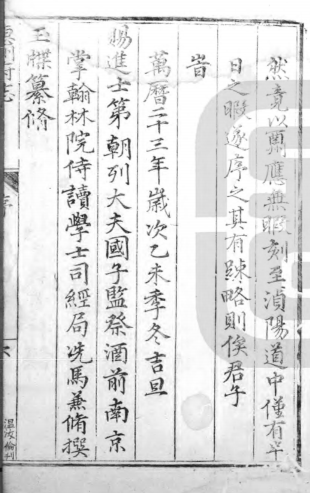 然竟以鹵應無暇刻至湞陽道中僅有半
日之暇遂序之其有踈略則俟君子
旹
萬曆二十三年歲次乙未季冬吉旦
賜進士第朝列大夫國子監祭酒前南京
掌翰林院侍讀學士司經局洗馬兼脩撰
玉牒纂脩
府志
序
六